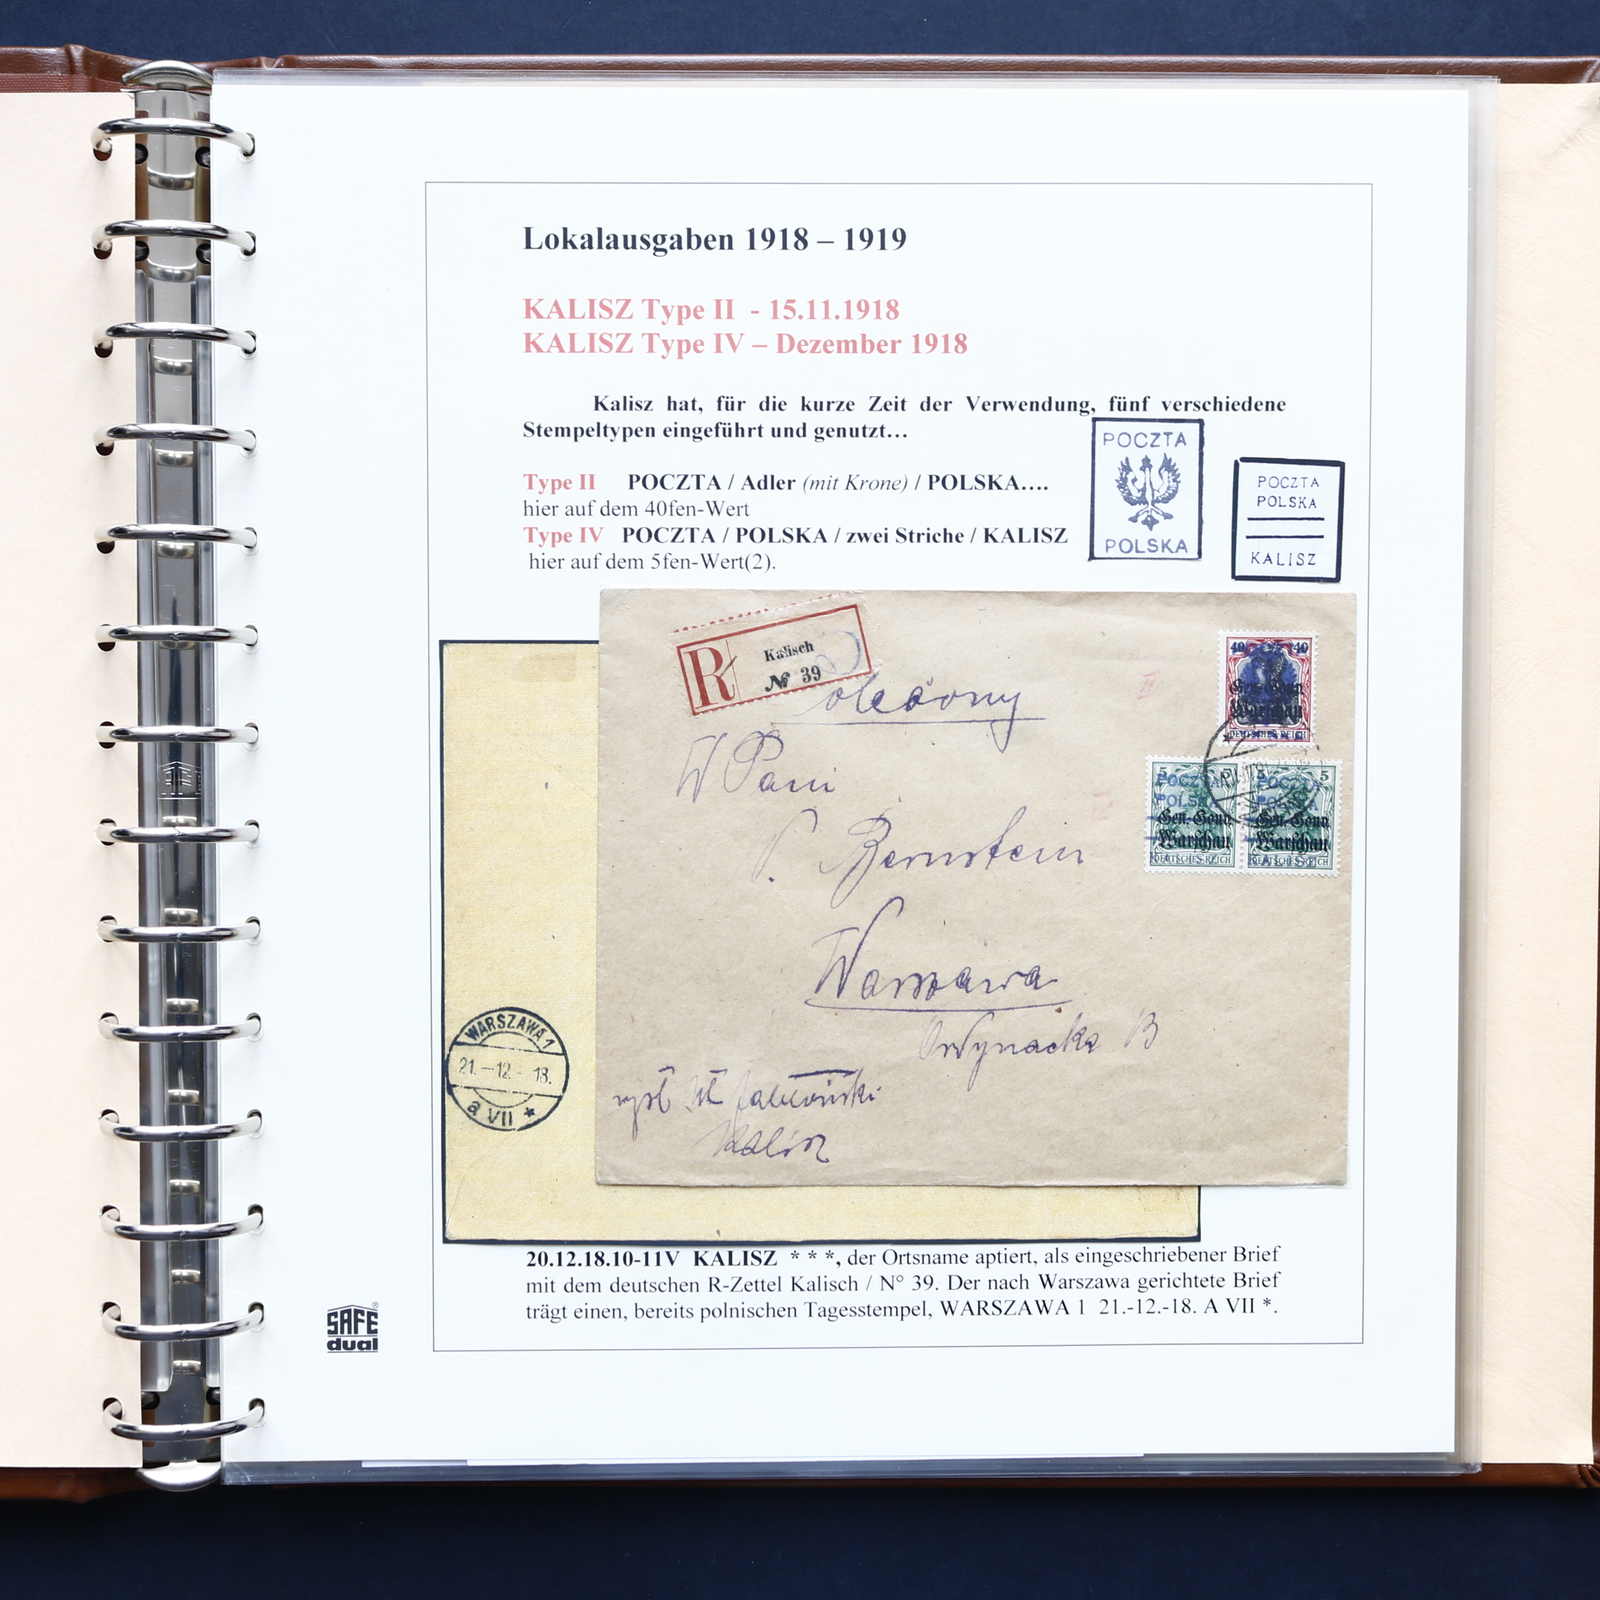 Lokalausgaben 1918 – 1919
KALISZ Type II - 15.11.1918
KALISZ Type IV – Dezember 1918
Kalisz hat, für die kurze Zeit der Verwendung, fünf verschiedene
Stempeltypen eingeführt und genutzt…
Type II POCZTA / Adler (mit Krone) / POLSKA….
hier auf dem 40fen-Wert
Type IV POCZTA / POLSKA / zwei Striche / KALISZ
hier auf dem 5fen-Wert(2).
POCZTA
POLSKA
POCZTA
POLSKA
KALISZ
R
Kalisch
№ 39
W Pani
Bernstein
Warszawa
Kalisz
40 40
Gen.-Gouv.
Warschau
DEUTSCHES REICH
5 5
POCZTA
POLSKA
Gen.-Gouv.
Warschau
DEUTSCHES REICH
5 5
POCZTA
POLSKA
Gen.-Gouv.
Warschau
DEUTSCHES REICH
WARSZAWA 1
21.-12.-18.
a VII *
20.12.18.10-11V KALISZ * * *, der Ortsname aptiert, als eingeschriebener Brief
mit dem deutschen R-Zettel Kalisch / N° 39. Der nach Warszawa gerichtete Brief
trägt einen, bereits polnischen Tagesstempel, WARSZAWA 1 21.-12.-18. A VII *.
SAFE®
dual